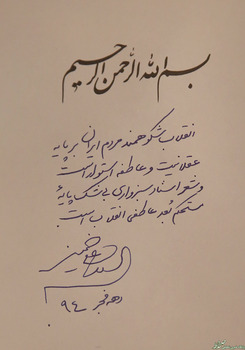 بسم الله الرحمن الرحیم
انقلاب شکوهمند مردم ایران بر پایه
عقلانیت و عاطفه استوار است
و شعر استاد سبزواری بی‌شک پایهٔ
مستحکم بُعد عاطفی انقلاب است
سید حسن خمینی
دهه فجر ۹۴